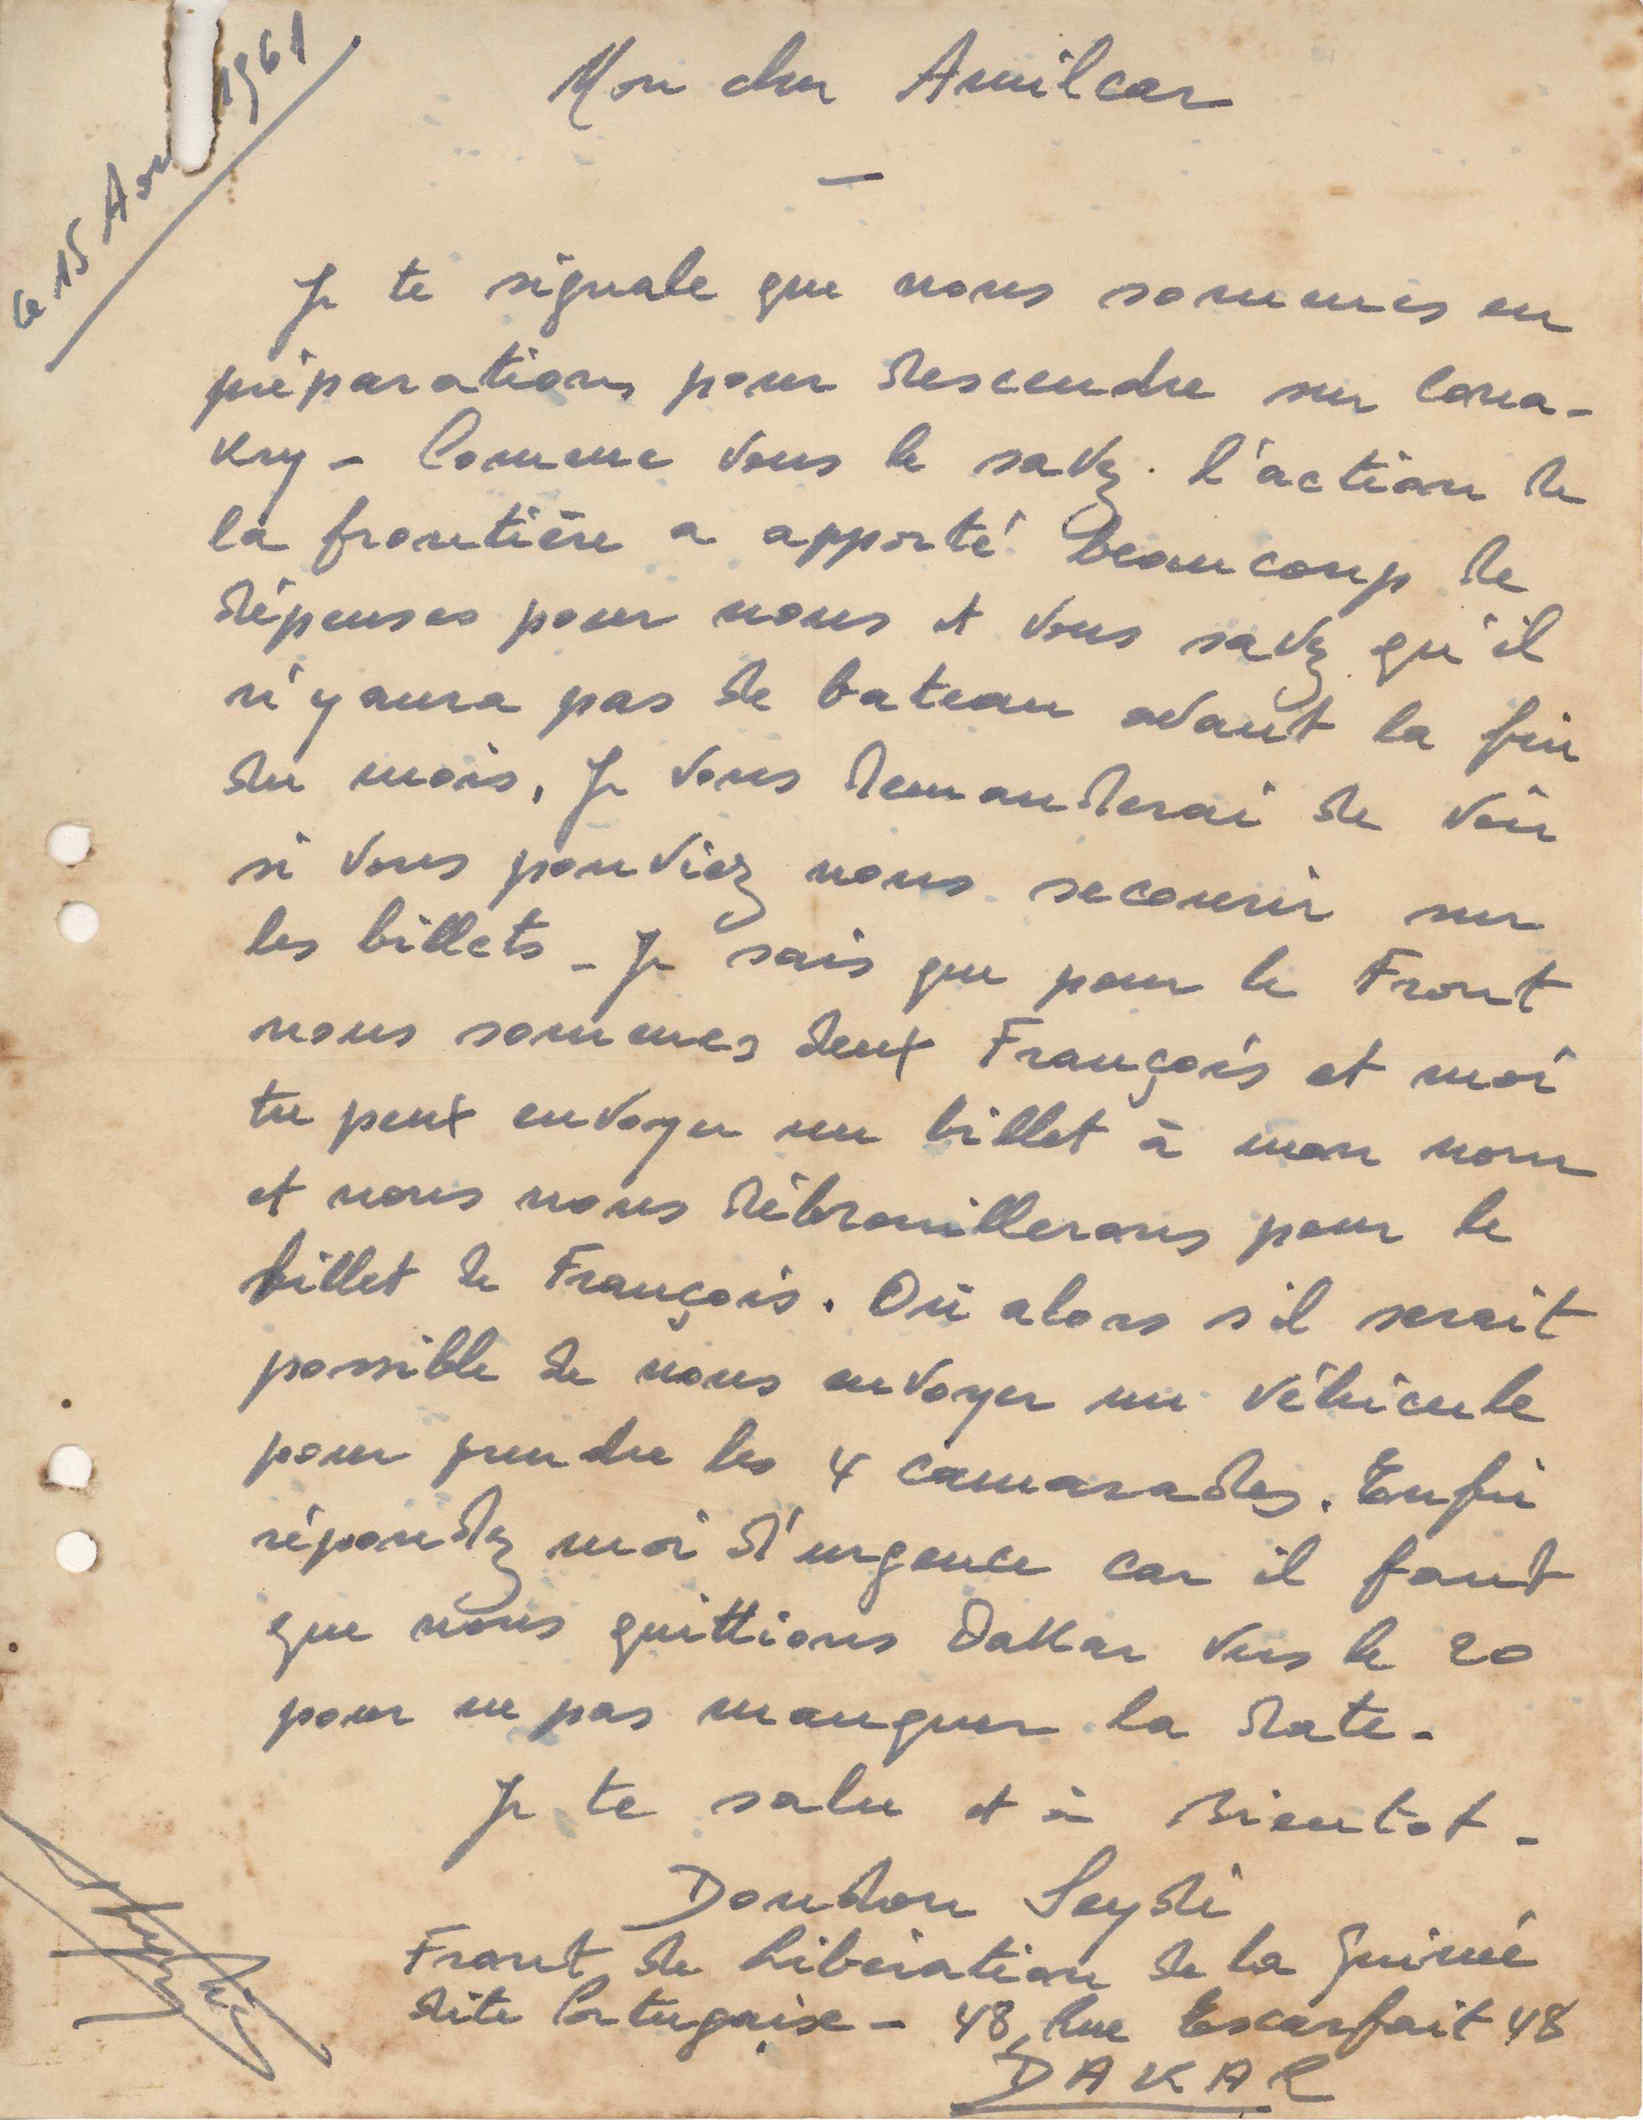 Le 15 Aou 1961
Mon cher Amilcar
Je te signale que nous sommes en
préparations pour descendre sur Cona-
kry - Comme vous le savez. l'action de
la frontière a apporté beaucoup de
dépenses pour nous et vous savez qu'il
n'y aura pas de bateau avant la fin
du mois. Je vous demanderai de voir
si vous pouviez nous secourir sur
les billets - Je sais que pour le Front
nous sommes deux François et moi
tu peux envoyer un billet à mon nom
et nous nous débrouillerons pour le
billet de François. Où alors s'il serait
possible de nous envoyer un véhicule
pour prendre les 4 camarades. Enfin
répondez moi d'urgence car il faut
que nous quittions Dakar vers le 20
pour ne pas manquer la date -
Je te salu et à Bientot -
Doudou Seydi
Front de Libération de la Guinée
dite Portugaise - 48, Rue Escarfait 48
DAKAR